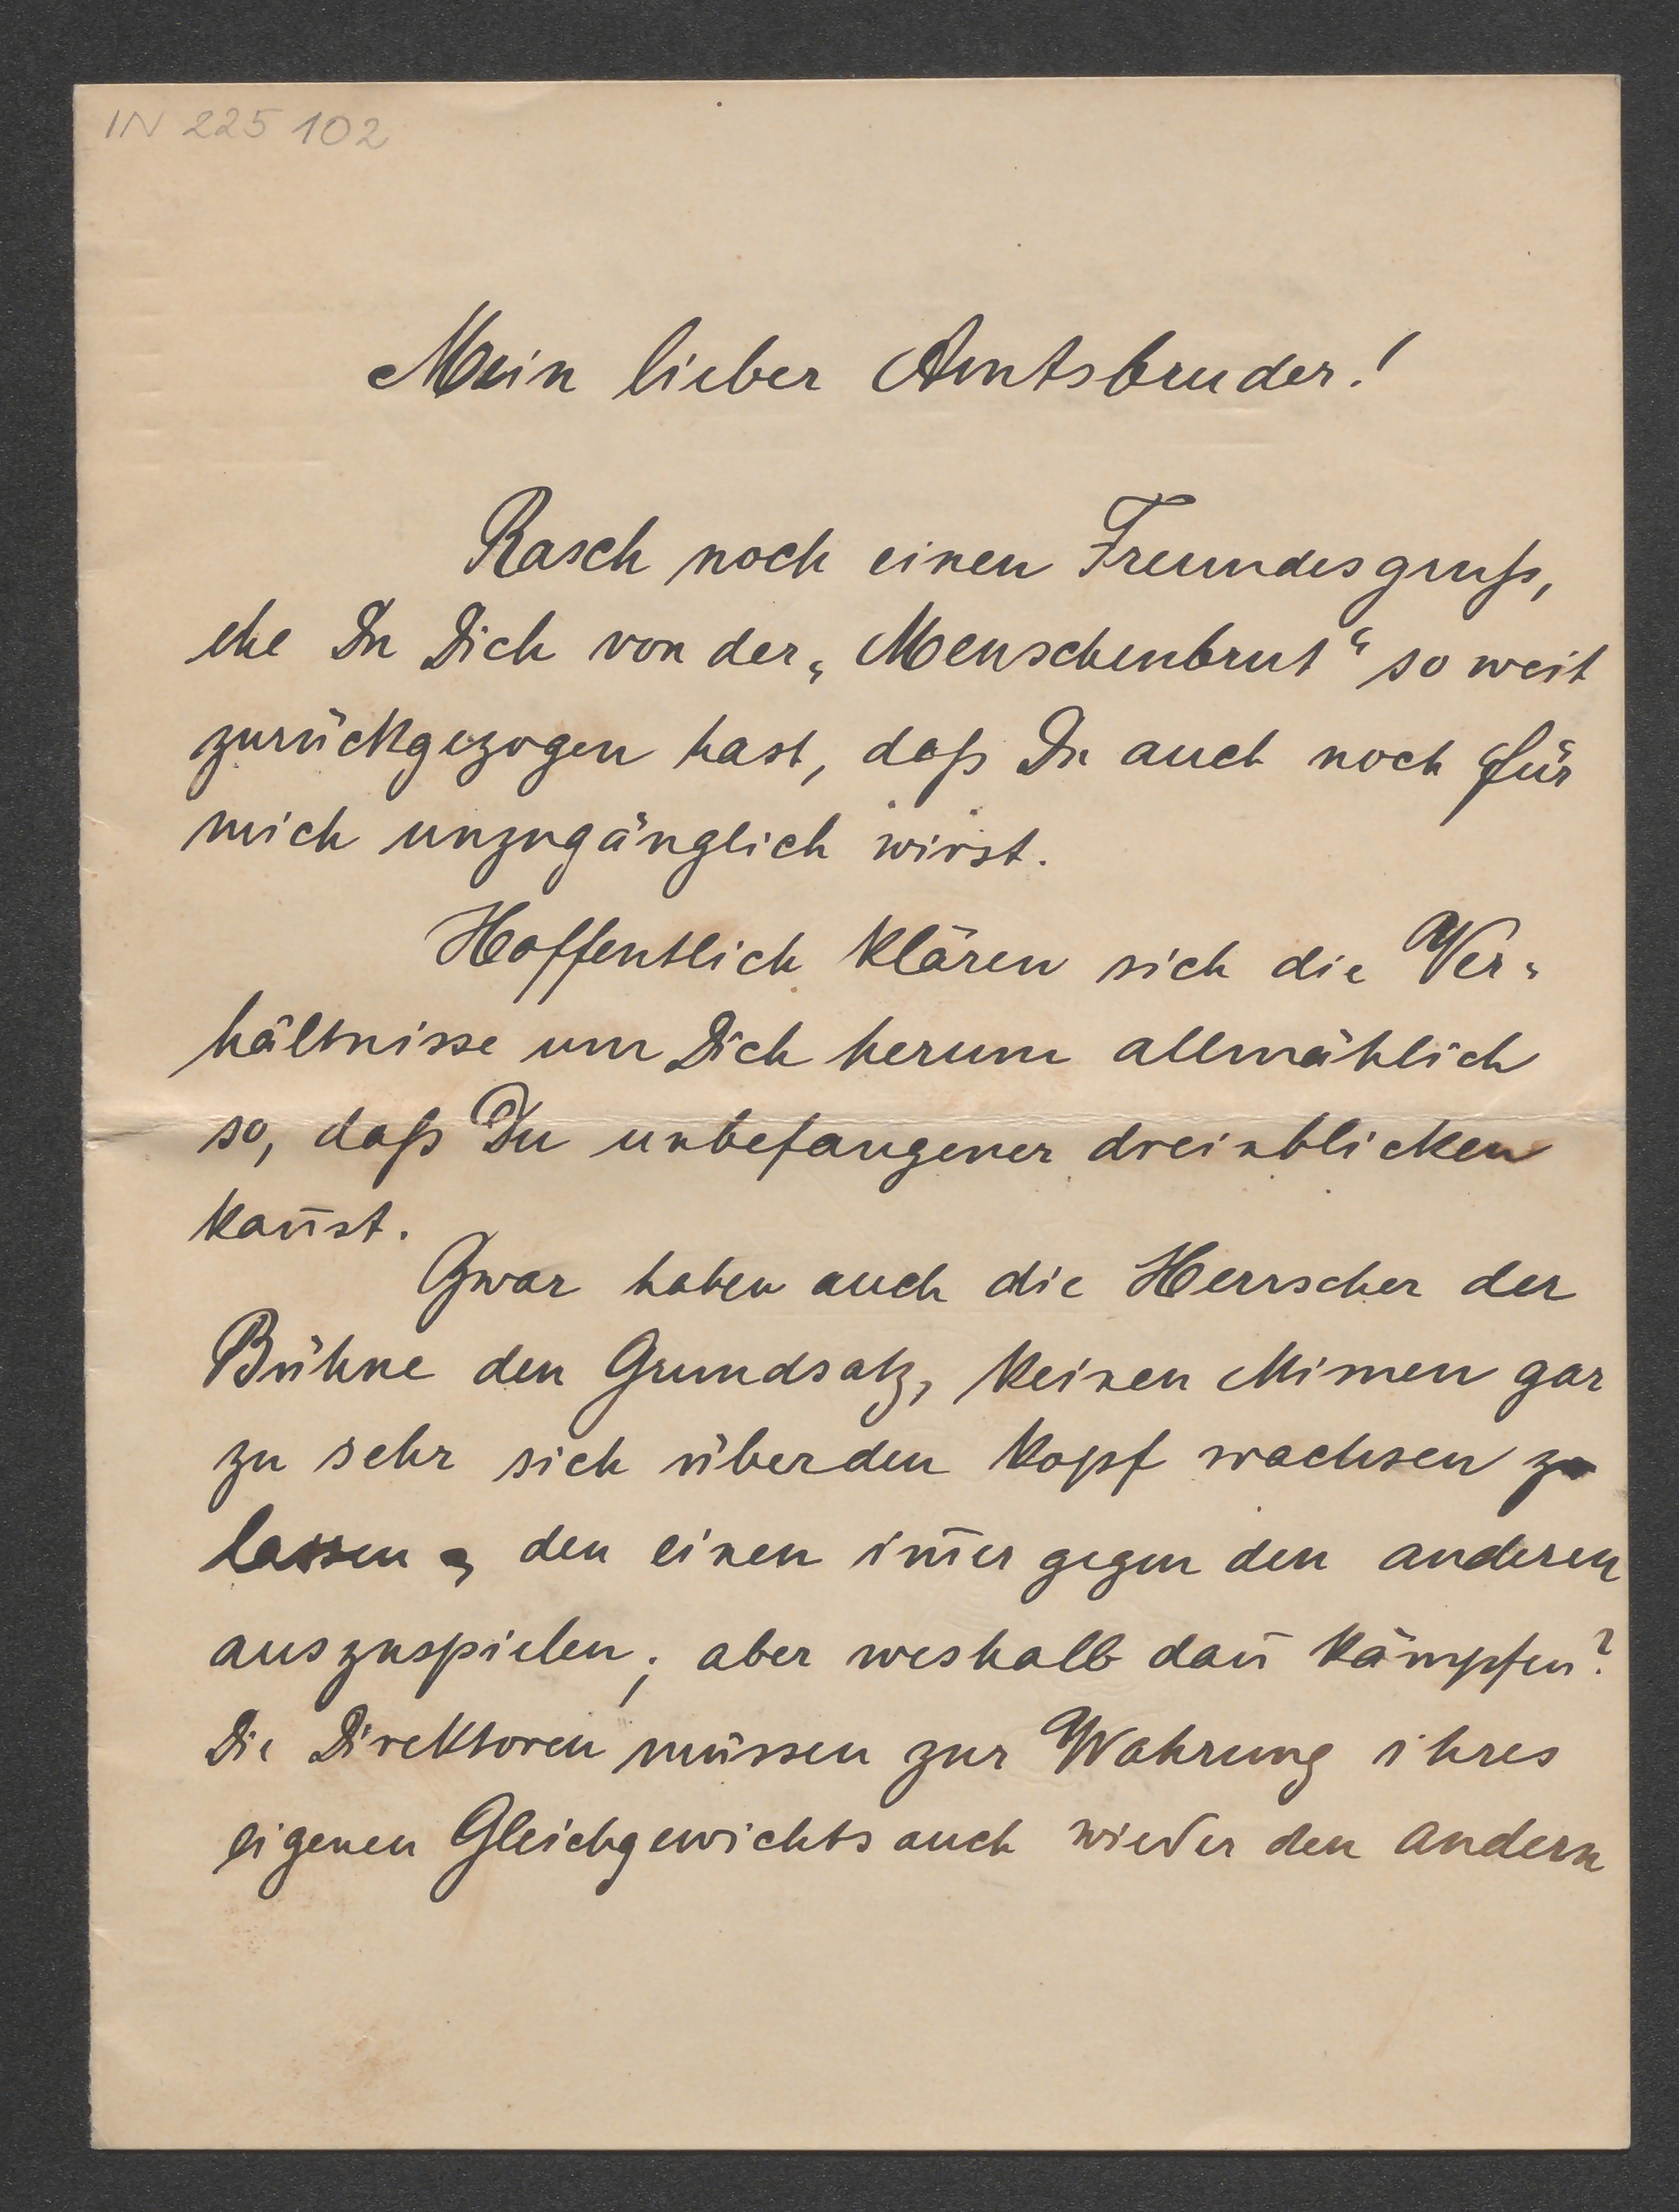 IN 225 102
Mein lieber Amtsbruder!
Rasch noch einen Freundesgruß,
ehe Du Dich von der „Menschenbrut“ so weit
zurückgezogen hast, daß Du auch noch für
mich unzugänglich wirst.
Hoffentlich klären sich die Ver-
hältnisse um Dich herum allmählich
so, daß Du unbefangener dreinblicken
kan̄st.
Zwar haben auch die Herrscher der
Bühne den Grundsatz, keinen Mimen gar
zu sehr sich über den Kopf wachsen zu
lassen, den einen im̄er gegen den anderen
auszuspielen; aber weshalb dan̄ kämpfen?
Die Direktoren müssen zur Wahrung ihres
eigenen Gleichgewichts auch wieder den andern